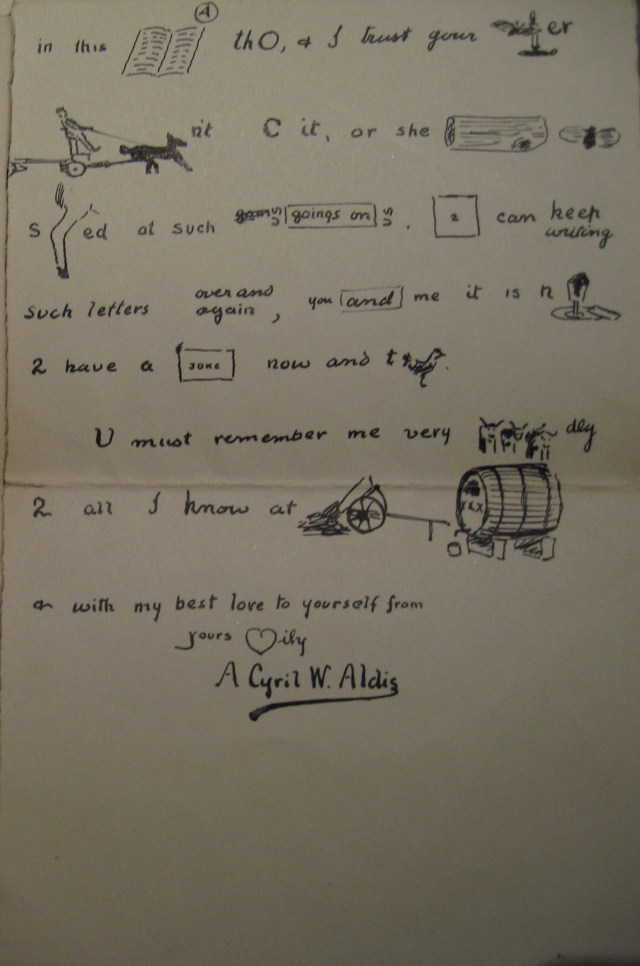 A
in this thO, & I trust your er
n't C it, or she
S ed at such goings on SU SU . 2 can keep writing
such letters over and again, you and me it is n
2 have a JOKE now and t .
U must remember me very dly
2 all I know at XXX
& with my best love to yourself from
yours ily
A Cyril W. Aldis